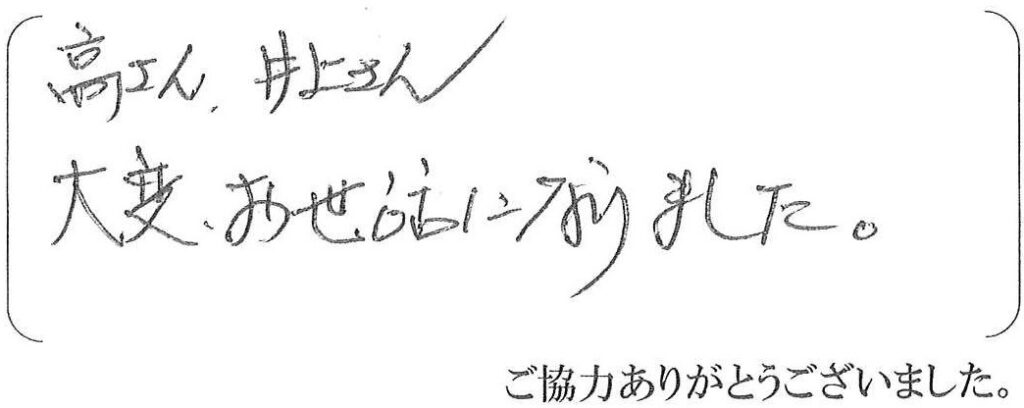 高さん、井上さん
大変、お世話になりました。
ご協力ありがとうございました。